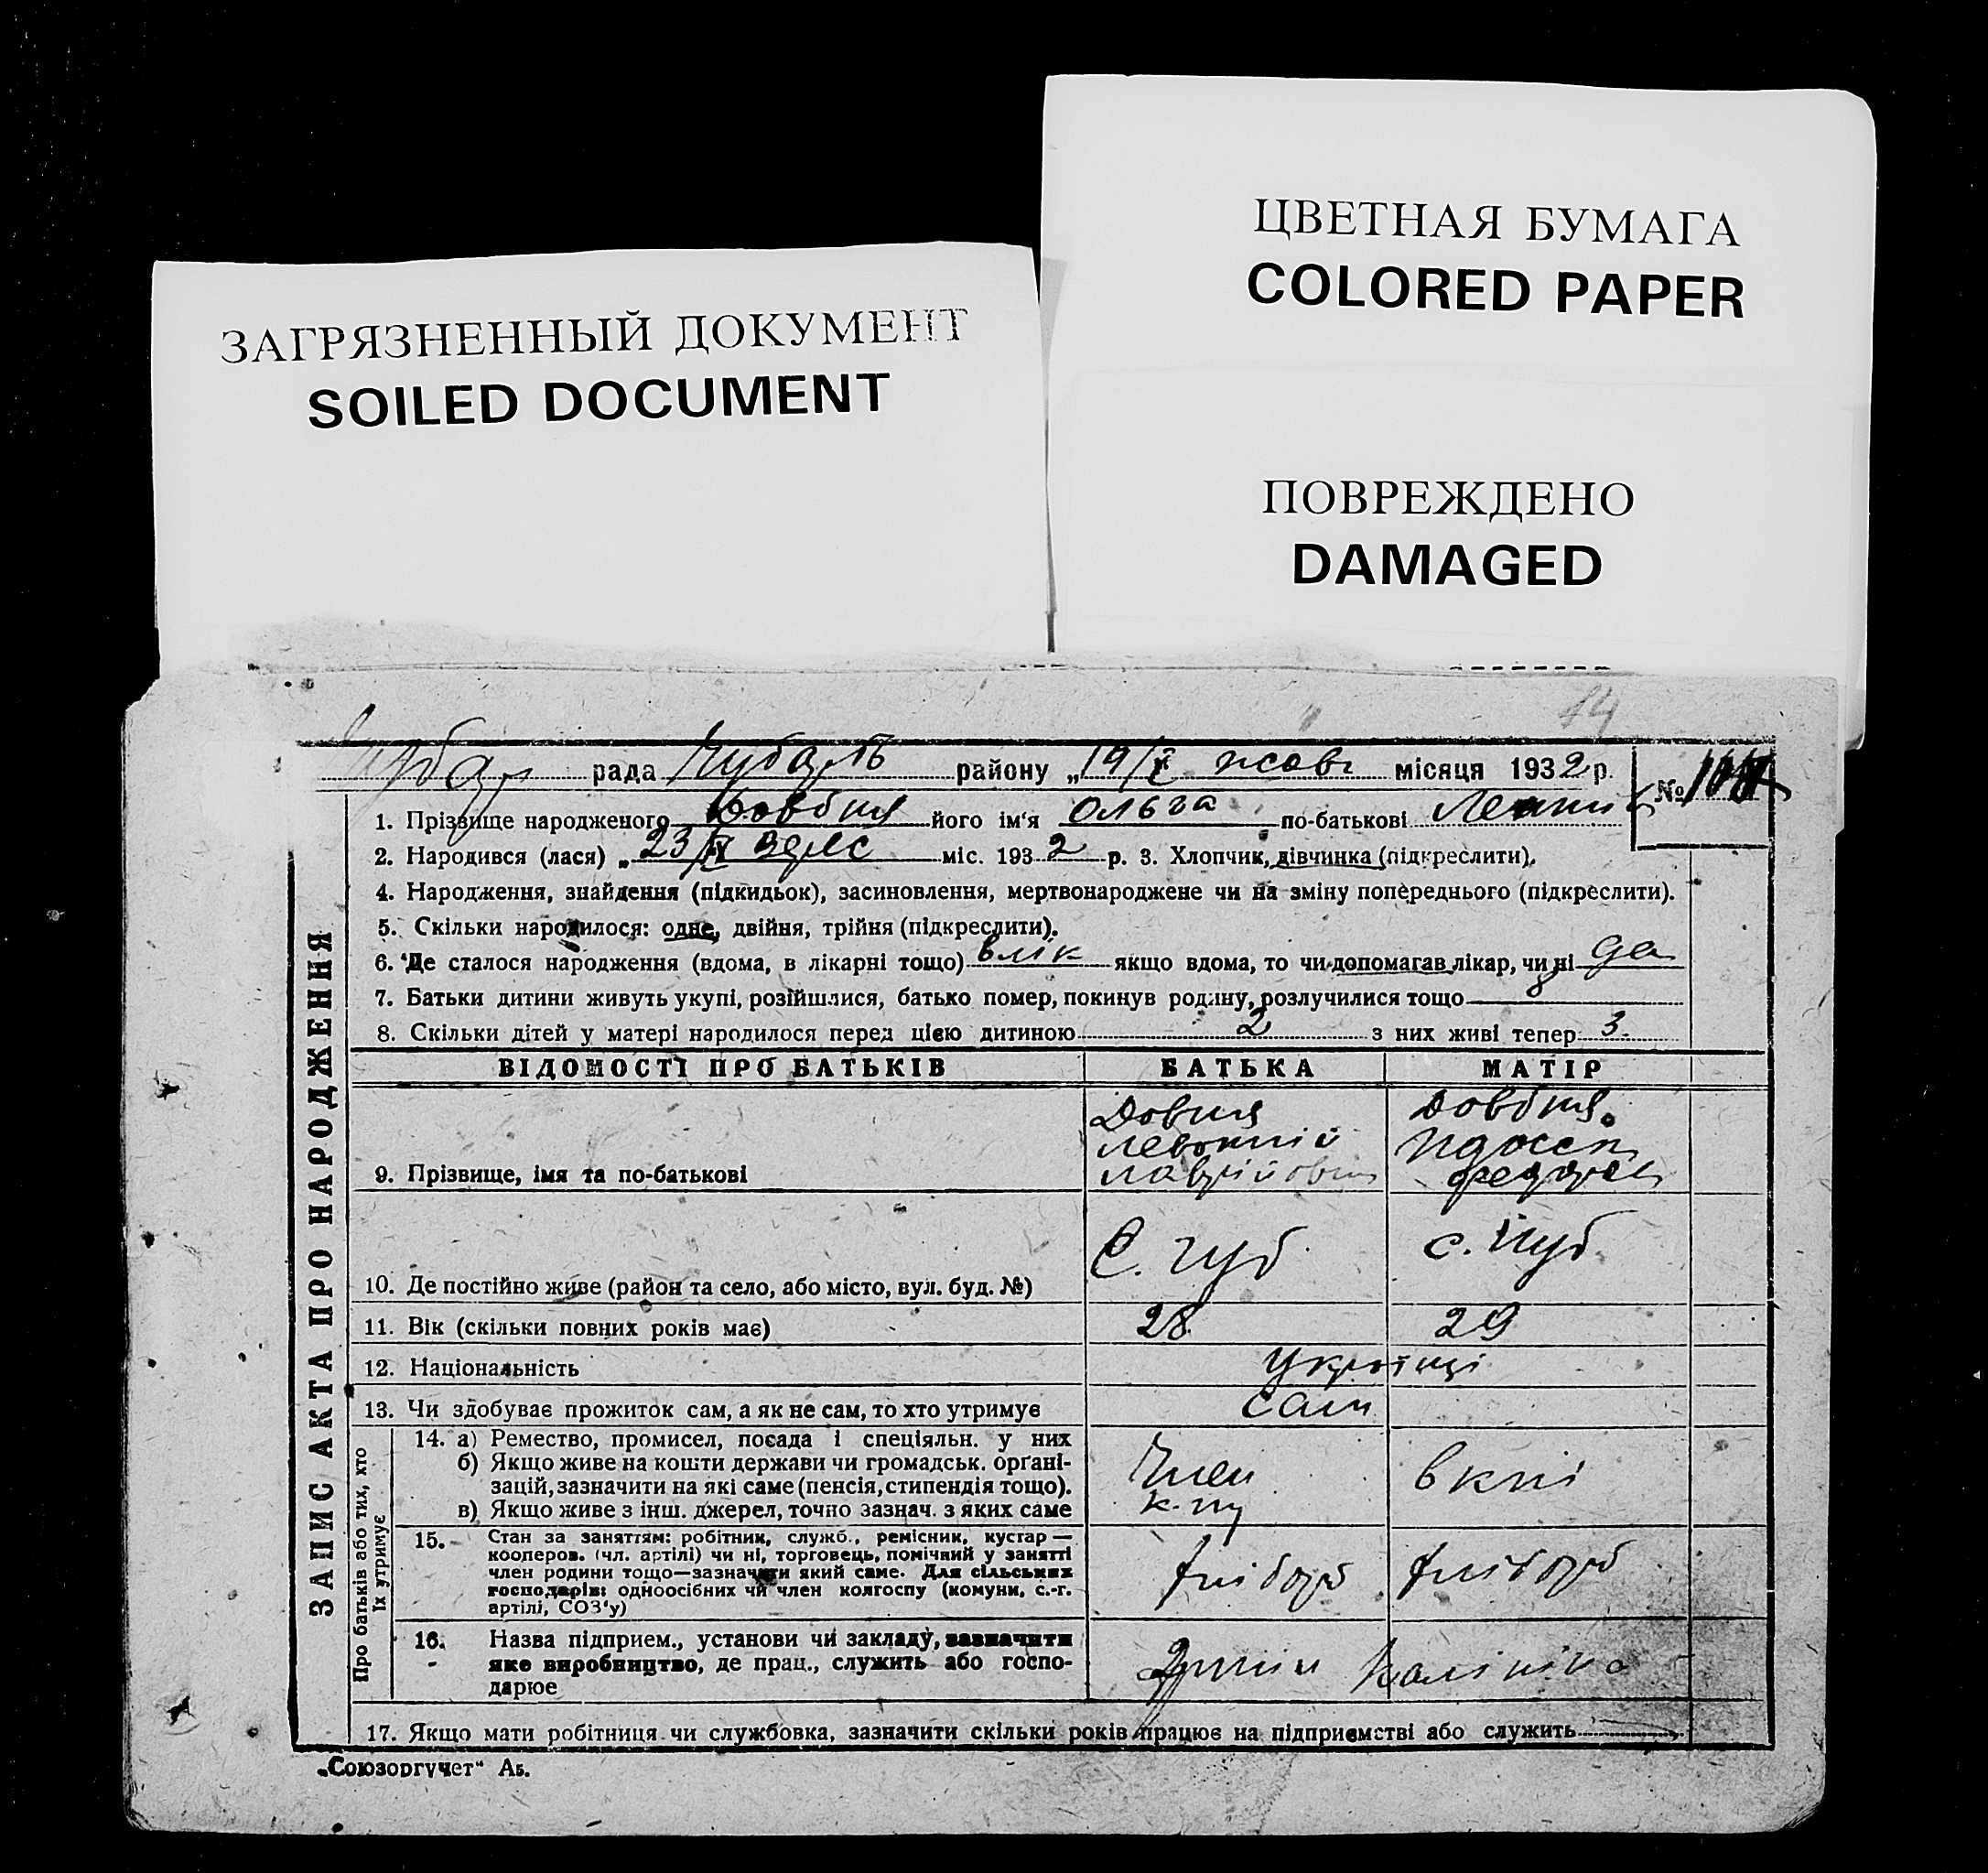 ЦВЕТНАЯ БУМАГА
COLORED PAPER
ЗАГРЯЗНЕННЫЙ ДОКУМЕНТ
SOILED DOCUMENT
ПОВРЕЖДЕНО
DAMAGED
14
рада району „19/X жовт місяця 1932 р.
№
1. Прізвище народженого Довбня його ім'я Ольга по-батькові
2. Народився (лася) „23/IX міс. 1932 р. 3. Хлопчик, дівчинка (підкреслити).
4. Народження, знайдення (підкидьок), засиновлення, мертвонароджене чи на зміну попереднього (підкреслити).
5. Скільки народилося: одне, двійня, трійня (підкреслити).
6. Де сталося народження (вдома, в лікарні тощо) в лік якщо вдома, то чи допомагав лікар, чи ні да
7. Батьки дитини живуть укупі, розійшлися, батько помер, покинув родину, розлучилися тощо
8. Скільки дітей у матері народилося перед цією дитиною 2 з них живі тепер 3
ВІДОМОСТІ ПРО БАТЬКІВ БАТЬКА МАТІР
Довбня
9. Прізвище, імя та по-батькові
10. Де постійно живе (район та село, або місто, вул. буд. №)
11. Вік (скільки повних років має) 28 29
12. Національність Українці
13. Чи здобуває прожиток сам, а як не сам, то хто утримує сам
14. а) Ремество, промисел, посада і спеціяльн. у них
б) Якщо живе на кошти держави чи громадськ. органі-
зацій, зазначити на які саме (пенсія, стипендія тощо).
в) Якщо живе з інш. джерел, точно зазнач. з яких саме
Член
15. Стан за заняттям: робітник, служб., ремісник, кустар —
кооперов. (чл. артілі) чи ні, торговець, помічний у занятті
член родини тощо—зазначити який саме. Для сільських
господарів: одноосібних чи член колгоспу (комуни, с.-г.
артілі, СОЗ'у)
хлібороб хлібороб
16. Назва підприєм., установи чи закладу, зазначити
яке виробництво, де прац., служить або госпо-
дарює
Калініна
17. Якщо мати робітниця чи службовка, зазначити скільки років працює на підприємстві або служить
ЗАПИС АКТА ПРО НАРОДЖЕННЯ
Про батьків або тих, хто
їх утримує
„Союзоргучет“ А5.